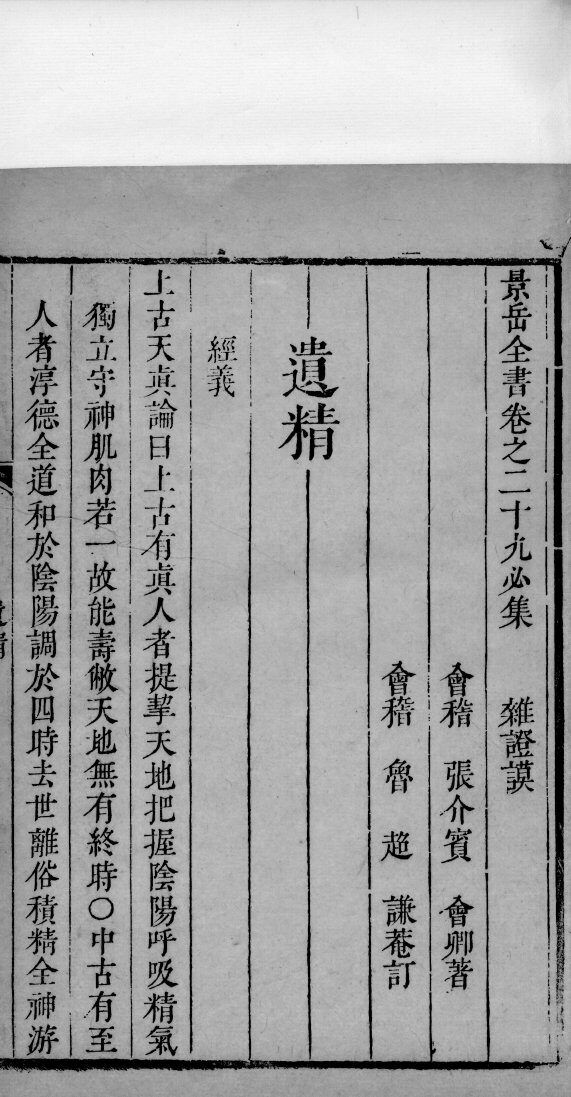 景岳全書卷之二十九必集　雜證謨
會稽　張介賓　會卿著
會稽　魯　超　謙菴訂
遺精
經義
上古天眞論曰上古有眞人者提挈天地把握陰陽呼吸精氣
獨立守神肌肉若一故能壽敝天地無有終時○中古有至
人者淳德全道和於陰陽調於四時去世離俗積精全神游